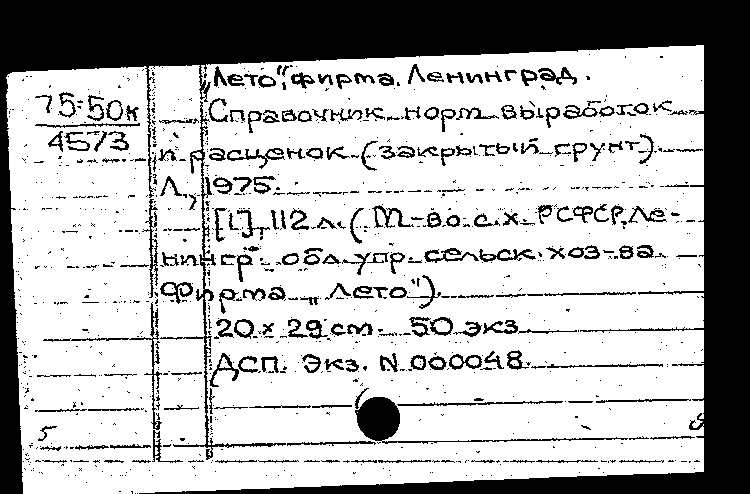 „Лето", фирма. Ленинград.
75-50к
4573
Справочник норм выработок
и расценок (закрытый грунт).
Л., 1975.
[1], 112 л. (М-во с.х. РСФСР. Ле-
нингр. обл. упр. сельск. хоз-ва.
Фирма „Лето").
20 х 29 см. 50 экз.
ДСП. Экз. N 000048.
5